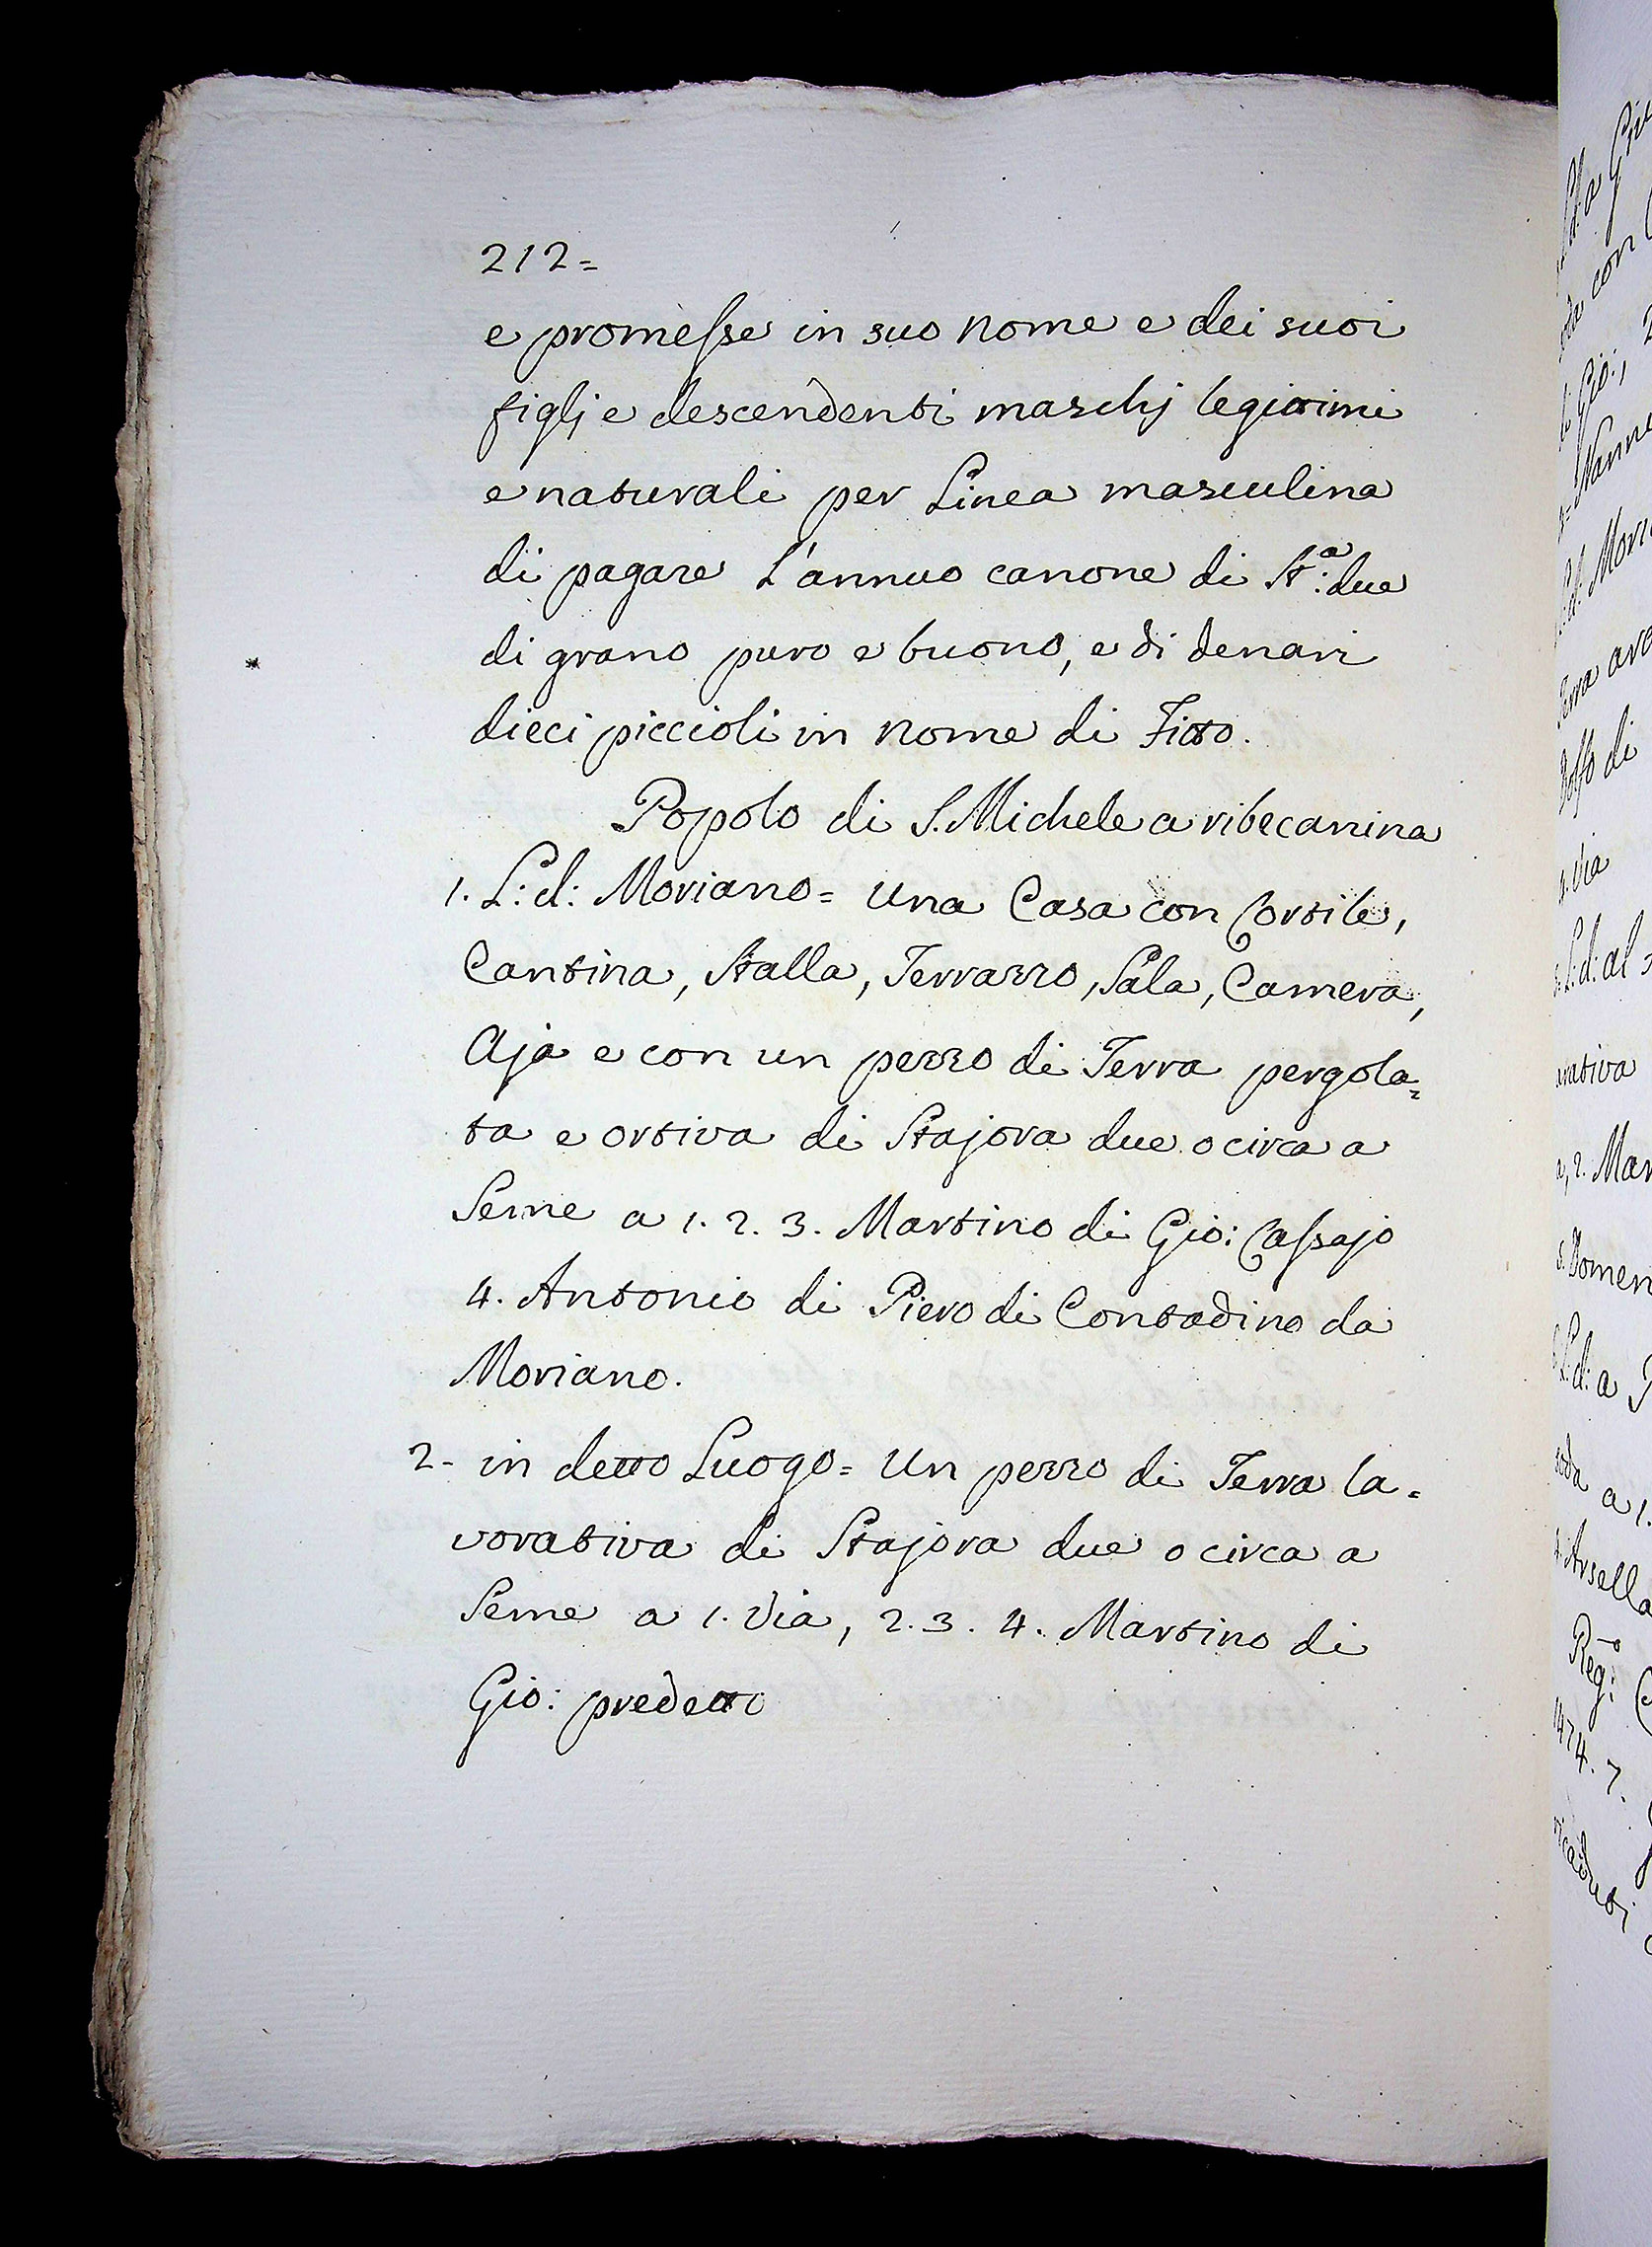 212=
e promesse in suo nome e dei suoi
figlj e descendenti maschj legittimi
e naturali per Linea masculina
di pagare L'annuo canone di St:ª due
di grano puro e buono, e di denari
dieci piccioli in nome di Fitto.
Popolo di S. Michele a ribecanina
1. L: d: Moriano= una Casa con Cortile,
Cantina, Stalla, Terrazzo, Sala, Camera,
Aja e con un pezzo di Terra pergola=
ta e ortiva di Stajora due o circa a
Seme a 1. 2. 3. Martino di Gio: Cassajo
4. Antonio di Piero di Contadino da
Moriano.
2- in detto Luogo= Un pezzo di Terra la=
vorativa di Stajora due o circa a
Seme a 1. Via, 2. 3. 4. Martino di
Gio: predetto